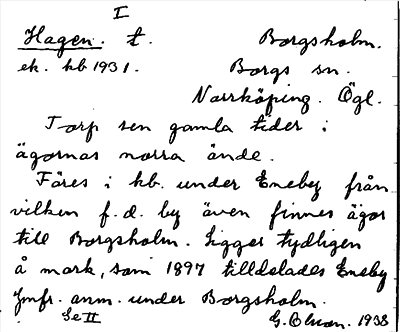 I
Hagen. t. Borgsholm.
ek. kb 1931. Borgs sn.
Norrköping. Ögl.
Torp sen gamla tider i
ägornas norra ände.
Föres i kb. under Eneby från
vilken f.d. by även finnes ägor
till Borgsholm. Ligger tydligen
å mark, som 1897 tilldelades Eneby
Jmfr. anm. under Borgsholm.
Se II G. Olson. 1938